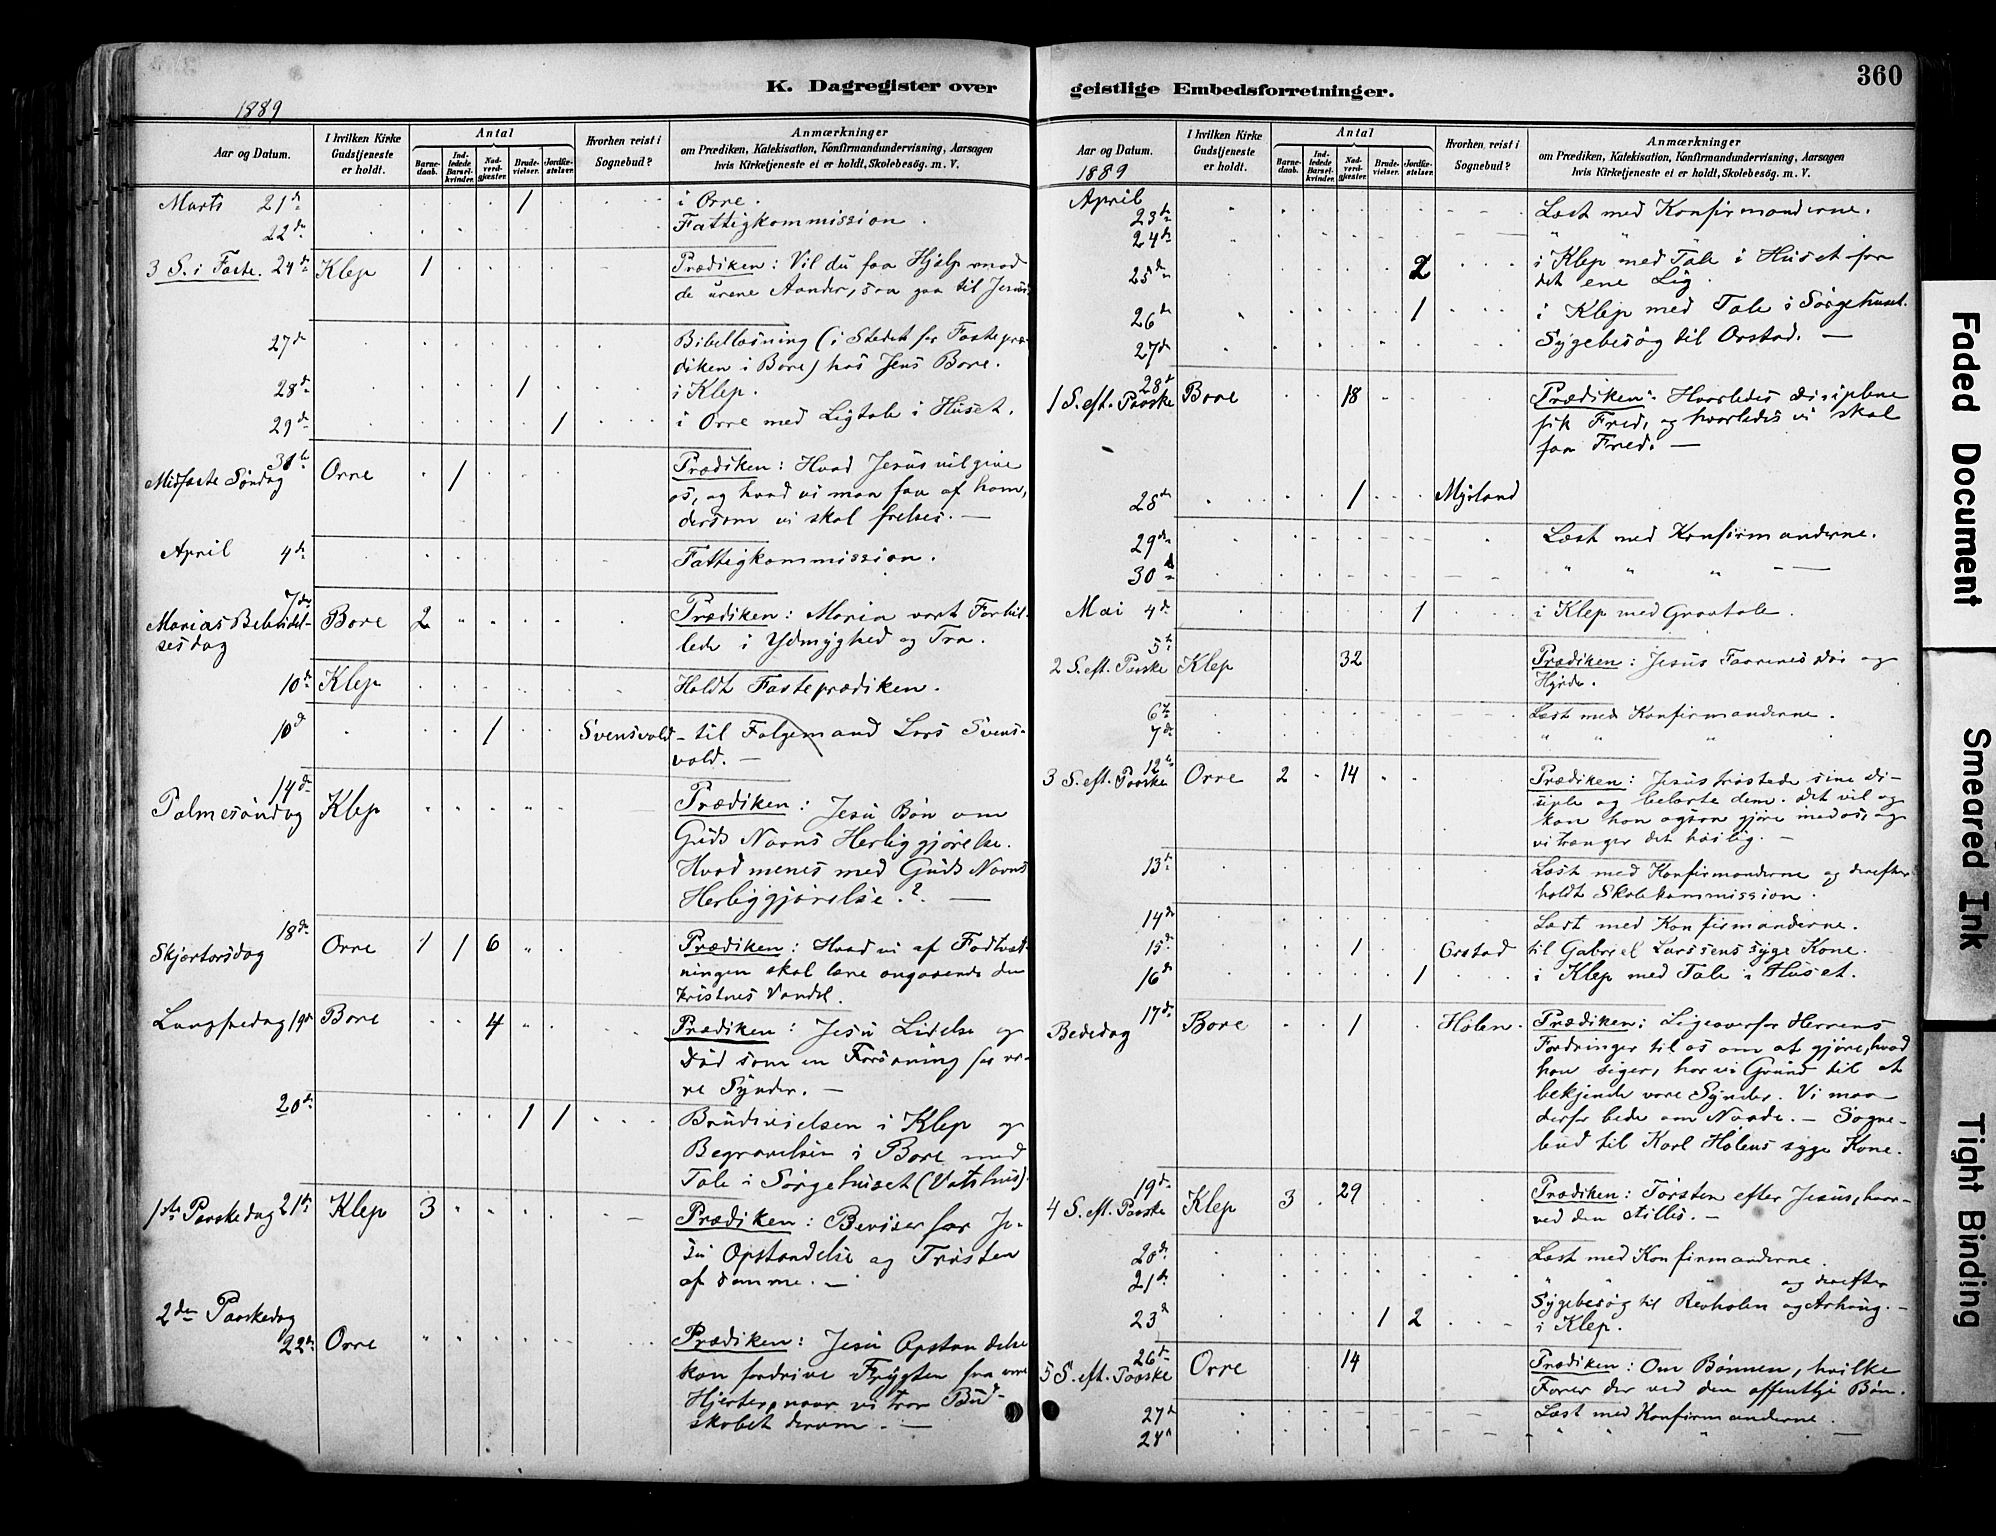 K. Dagregister over
1889
Aar og Datum.
I hvilken Kirke Gudstjeneste er holdt.
Antal
Barnedaab.
Indledede Barselkvinder.
Nadverdgjæster.
Brudevielser.
Jordfæstelser.
Hvorhen reist i Sognebud?
Anmærkninger
om Prædiken, Katekisation, Konfirmandundervisning, Aarsagen
hvis Kirketjeneste ei er holdt, Skolebesøg. m. V.
Marts 21de 1 i Orre.
22de Fattigkommission.
3 S. i Faste. 24de Klep 1 Prædiken: Vil du faa Hjælp mod
de urene Aander, saa gaa til Jesus.
27de Bibellæsning (i Stedet for Fastepræ-
diken i Bore) hos Jens Bore.
28de 1 i Klep.
29de 1 i Orre med Ligtale i Huset.
31te
Midfaste Søndag Orre 1 Prædiken: Hvad Jesus vil give
os, og hvad vi maa faa af ham,
dersom vi skal frelses. —
April 4de Fattigkommission.
7de
Marias Bebudel- Bore 2 Prædiken: Maria vort Forbil-
sesdag lede i Ydmyghed og Tro.
10de Klep Holdt Fasteprædiken.
10de 1 Svensvold – til Følgemand Lars Svens-
vold. —
14de
Palmesøndag Klep Prædiken: Jesu Bøn om
Guds Navns Herliggjørelse.
Hvad menes med Guds Navns
Herliggjørelse? —
18de
Skjærtorsdag Orre 1 1 6 Prædiken: Hvad vi af Fodtvæt-
ningen skal lære angaaende den
kristnes Vandel.
Langfredag 19de Bore 4 Prædiken: Jesu Lidelse og
Død som en Forsoning for vo-
re Synder. —
20de 1 1 Brudevielsen i Klep og
Begravelsen i Bore med
Tale i Sørgehuset (Vatshus).
1ste Paaskedag 21de Klep 3 Prædiken: Beviser for Je-
su Opstandelse og Trøsten
af samme. —
2den Paaskedag
22de Orre Prædiken: Jesu Opstandelse
kan fordrive Frygten fra vore
Hjerter, naar vi tror Bud-
skabet derom. —
geistlige Embedsforretninger.
360
Aar og Datum.
1889
I hvilken Kirke Gudstjeneste er holdt.
Antal
Barnedaab.
Indledede Barselkvinder.
Nadverdgjæster.
Brudevielser.
Jordfæstelser.
Hvorhen reist i Sognebud?
Anmærkninger
om Prædiken, Katekisation, Konfirmandundervisning, Aarsagen
hvis Kirketjeneste ei er holdt, Skolebesøg. m. V.
April
23de Læst med Konfirmanderne.
24de " "
25de 2 i Klep med Tale i Huset for
det ene Lig.
26de 1 i Klep med Tale i Sørgehuset.
27de Sygebesøg til Orstad. —
28de
1 S. eft. Paaske Bore 18 Prædiken: Hvorledes Disiplene
fik Fred, og hvorledes vi skal
faa Fred. —
28de 1 Myrland
29de Læst med Konfirmanderne.
30de " " " —
Mai 4de 1 i Klep med Gravtale.
5te
2 S. eft. Paaske Klep 32 Prædiken: Jesus Faarenes Dør og
Hyrde.
6te Læst med Konfirmanderne.
7de " " "
12te
3 S. eft. Paaske Orre 2 14 Prædiken: Jesus trøstede sine Di-
siple og belærte dem. Det vil og
kan han ogsaa gjøre med os, og
vi trænger det høilig. —
13de Læst med Konfirmanderne og derefter
holdt Skolekommission.
14de Læst med Konfirmanderne.
15de 1 Orstad til Gabriel Larssens syge Kone.
16de 1 i Klep med Tale i Huset.
17de
Bededag Bore 1 Holen. Prædiken: Ligeoverfor Herrens
Fordringer til os om at gjøre, hvad
han siger, har vi Grund til at
bekjende vore Synder. Vi maa
derfor bede om Naade. — Sogne-
bud til Karl Holens syge Kone.
19de
4 S. eft. Paaske Klep 3 29 Prædiken: Tørsten efter Jesus, hvor-
ved den stilles. —
20de Læst med Konfirmanderne.
21de " " " og derefter
Sygebesøg til Revholen og Ashaug. —
23de 1 2 i Klep.
26de
5 S. eft. Paaske Orre 14 Prædiken: Om Bønnen, hvilke
Farer der ved den offentlige Bøn.
27de Læst med Konfirmanderne.
28de " " " —
Faded Document
Smeared Ink
Tight Binding